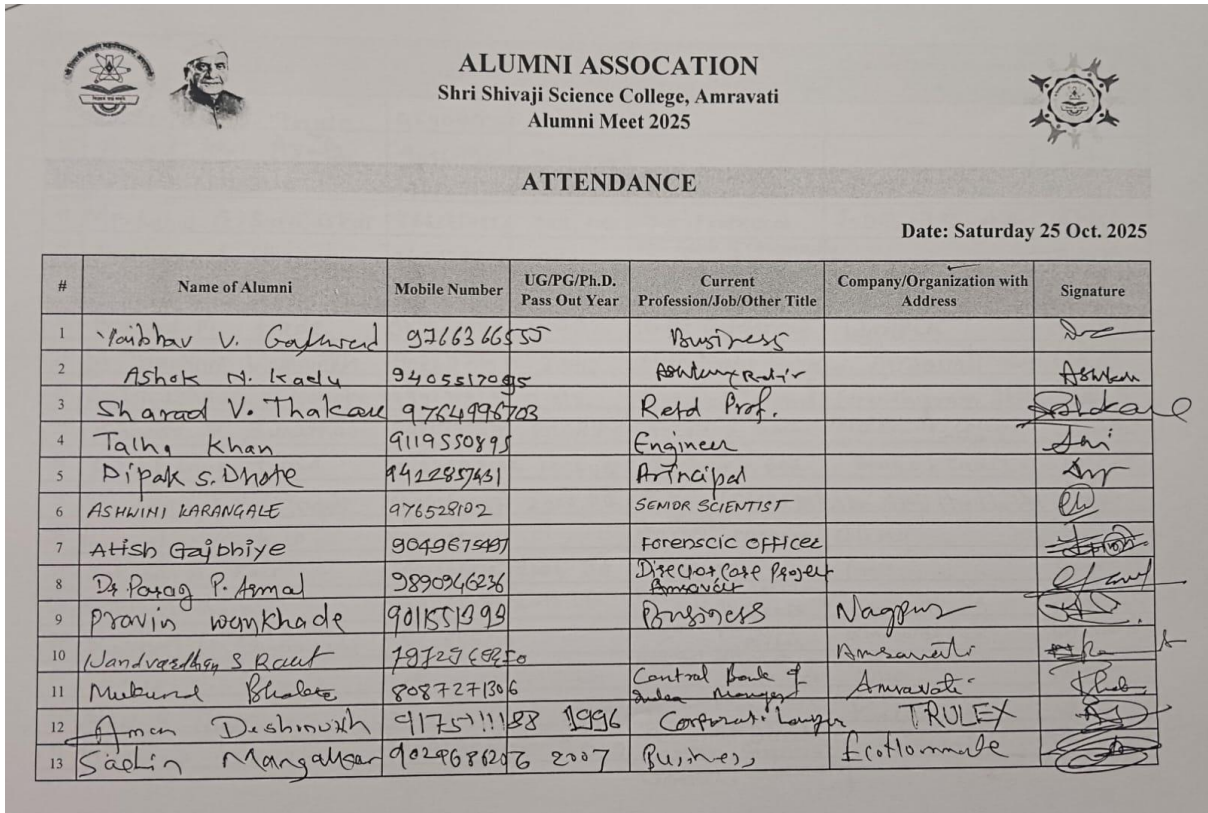 ALUMNI ASSOCATION
Shri Shivaji Science College, Amravati
Alumni Meet 2025
ATTENDANCE
Date: Saturday 25 Oct. 2025
# Name of Alumni Mobile Number UG/PG/Ph.D. Pass Out Year Current Profession/Job/Other Title Company/Organization with Address Signature
1 Vaibhav V. 9766366555 Business
2 Ashok N. Kadu 9405517095
3 Sharad V. Thakare 9764996703 Retd Prof.
4 Talha Khan 9119550895 Engineer
5 Dipak S. Dhote 9422857431 Principal
6 ASHWINI KARANGALE 976528102 SENIOR SCIENTIST
7 Atish Gajbhiye 9049675497 Forenscic officer
8 Dr Parag P. 9890946236 Director Care Project Amravati
9 Pravin wankhade Business Nagpur
10 Nandvardhan S Raut Amravati
11 Mukund 8087271306 Central Bank of India Manager Amravati
12 Aman Deshmukh 9175111188 1996 Corporate Lawyer TRULEX
13 Sachin 9029686206 2007 Business